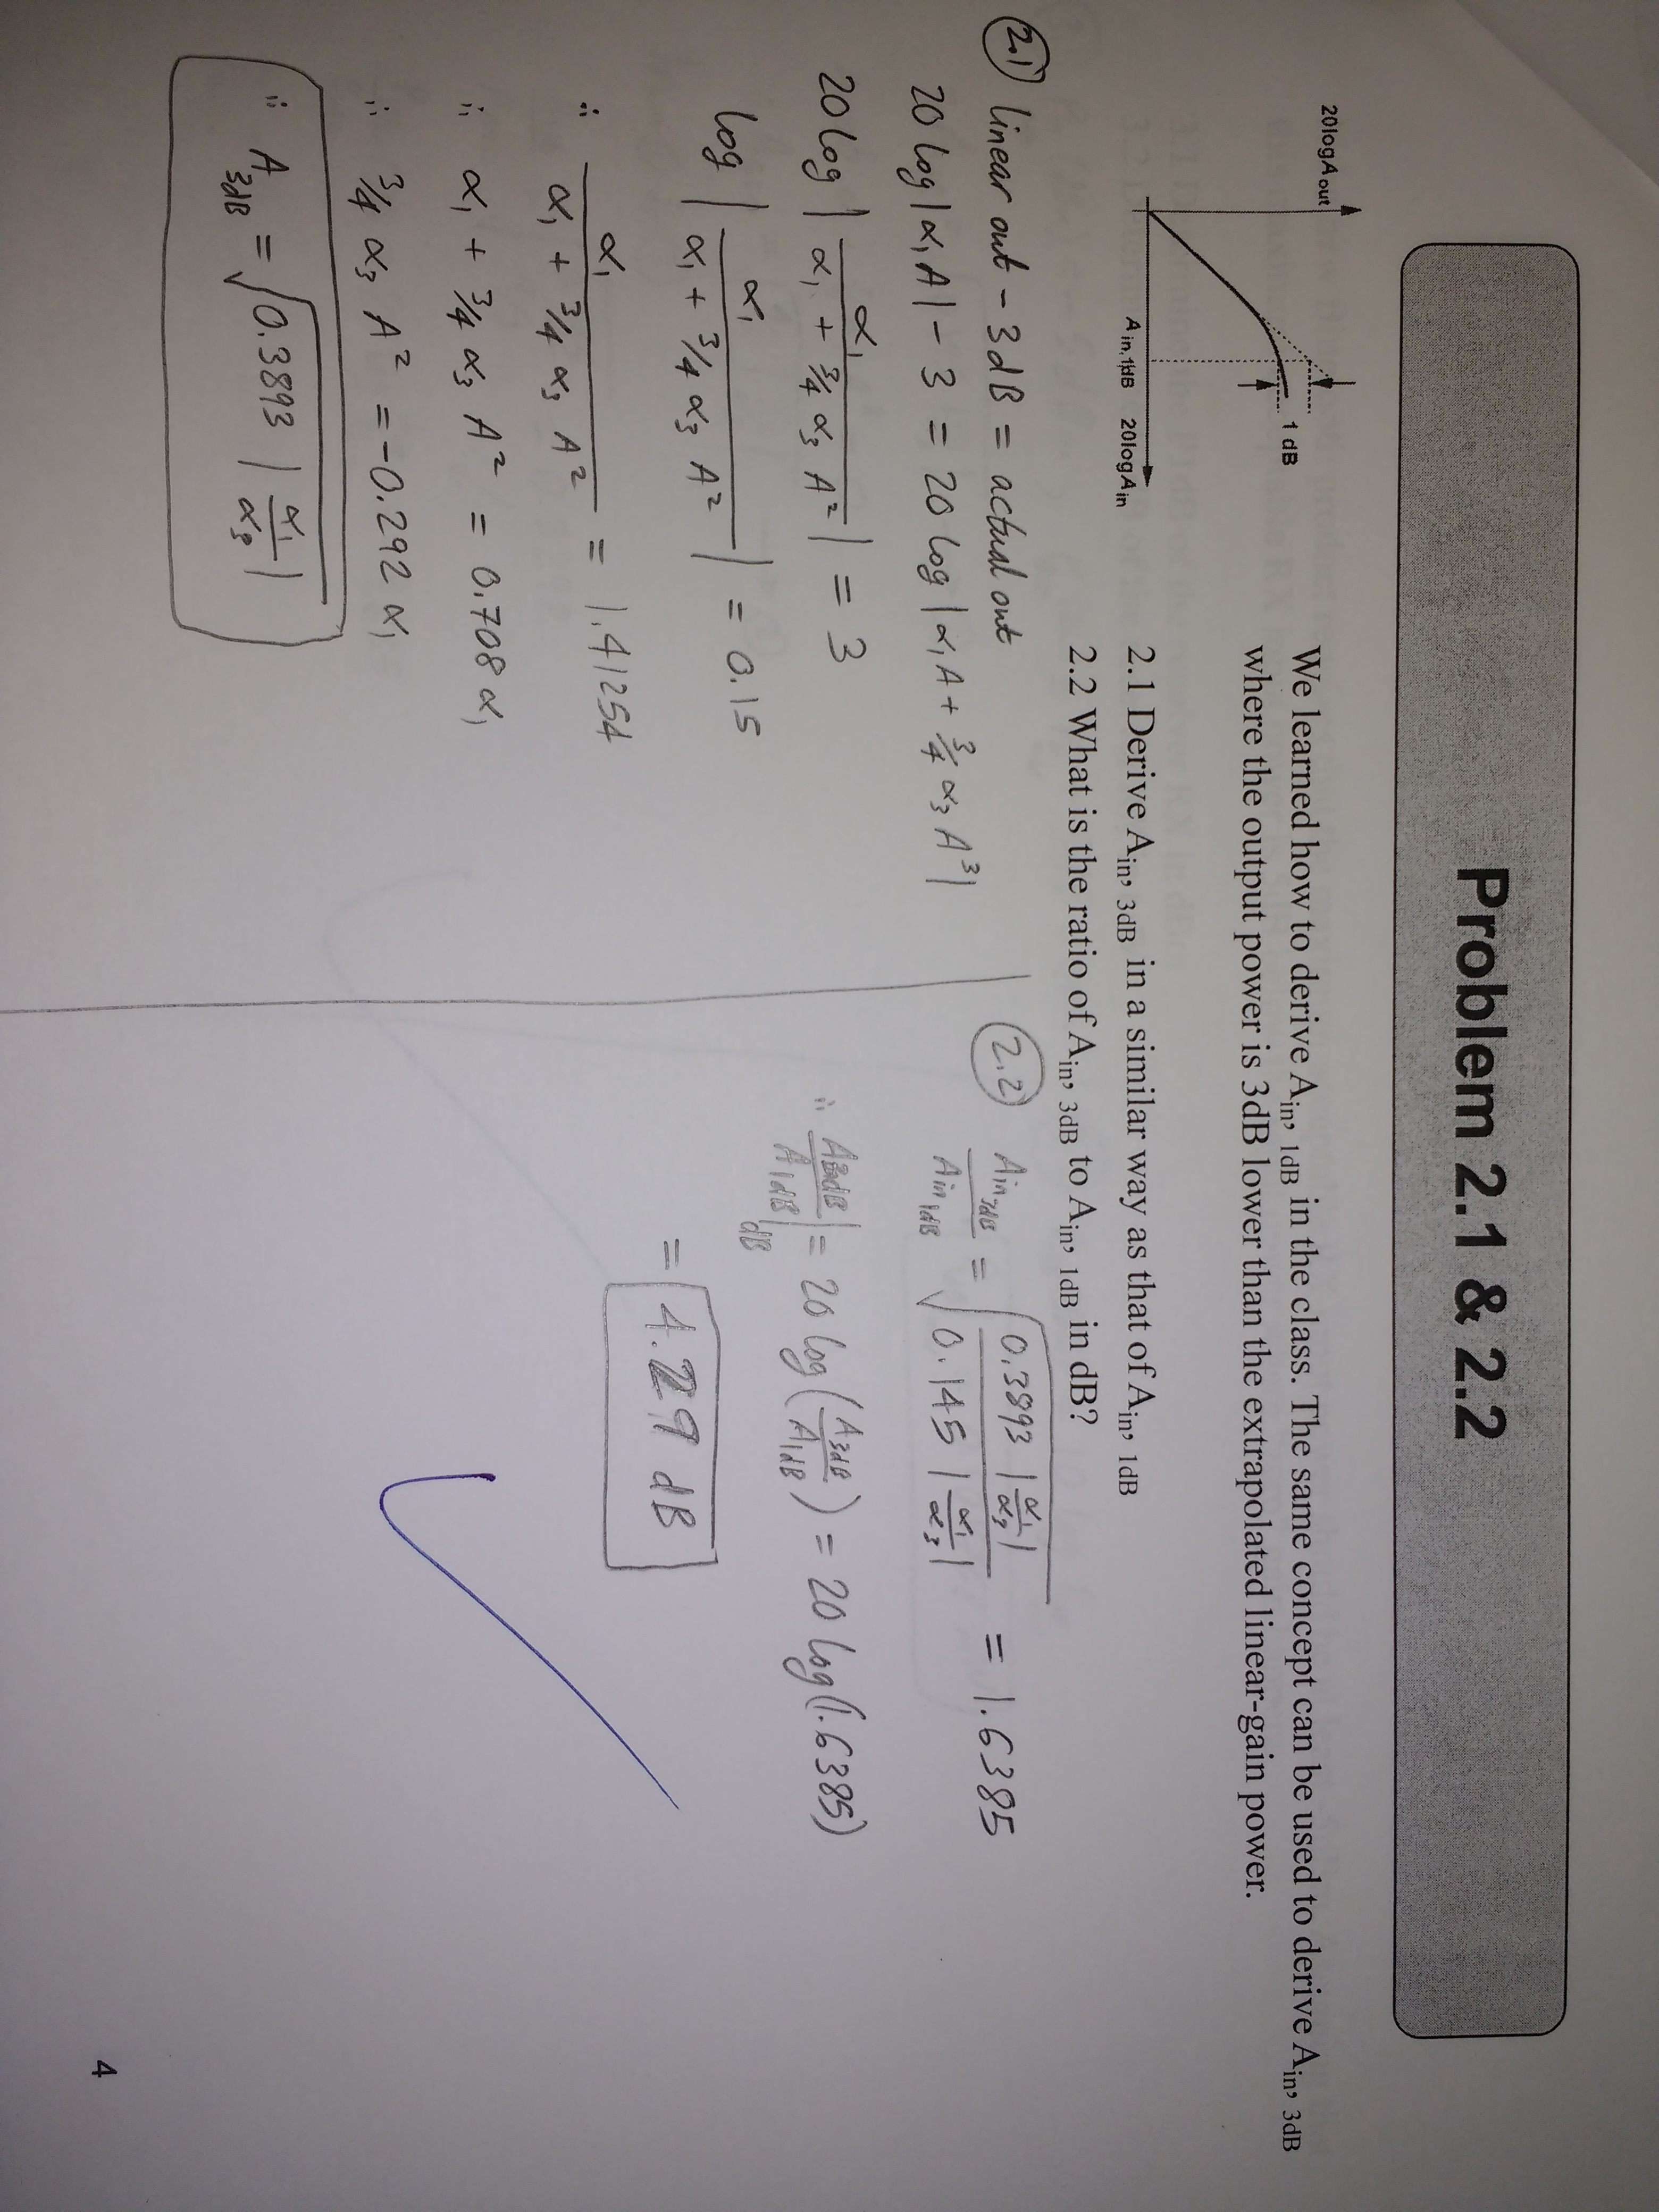 Problem 2.1 & 2.2
We learned how to derive A_in, 1dB in the class. The same concept can be used to derive A_in, 3dB
where the output power is 3dB lower than the extrapolated linear-gain power.
20logA_out
1 dB
A_in,1dB 20logA_in
2.1 Derive A_in, 3dB in a similar way as that of A_in, 1dB
2.2 What is the ratio of A_in, 3dB to A_in, 1dB in dB?
2.1 linear out - 3dB = actual out
20 log |α₁A| - 3 = 20 log |α₁A + 3/4 α₃ A³|
20 log | α₁ / (α₁ + 3/4 α₃ A²) | = 3
log | α₁ / (α₁ + 3/4 α₃ A²) | = 0.15
∴ α₁ / (α₁ + 3/4 α₃ A²) = 1.41254
∴ α₁ + 3/4 α₃ A² = 0.708 α₁
∴ 3/4 α₃ A² = -0.292 α₁
∴ A_3dB = √(0.3893 | α₁/α₃ |)
2.2 A_in3dB / A_in1dB = √(0.3893 |α₁/α₃| / 0.145 |α₁/α₃|) = 1.6385
∴ A3dB / A1dB |dB = 20 log (A3dB / A1dB) = 20 log (1.6385)
= 4.29 dB
4